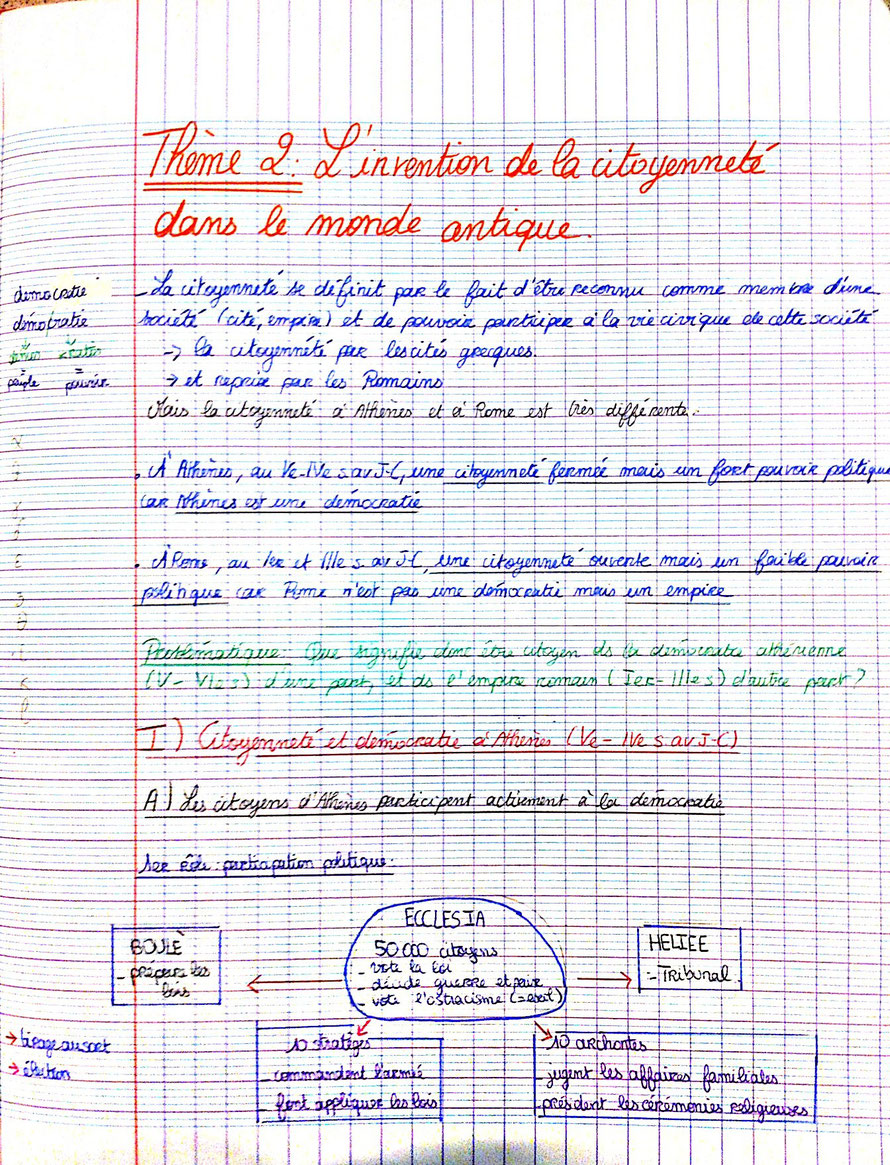 Thème 2: L'invention de la citoyenneté
dans le monde antique.
démocratie
démo/cratie
démos kratos
= =
peuple pouvoir
- La citoyenneté se définit par le fait d'être reconnu comme membre d'une
société (cité, empire) et de pouvoir participer à la vie civique de cette société
-> la citoyennété par les cités grecques.
-> et reprise par les Romains
Mais la citoyenneté à Athènes et à Rome est très différente.
. À Athènes, au Ve-IVe s av J-C, une citoyenneté fermée mais un fort pouvoir politique
car Athènes est une démocratie
. À Rome, au Ier et IIIe s av J-C, une citoyenneté ouverte mais un faible pouvoir
politique car Rome n'est pas une démocratie mais un empire
Problématique: Que signifie donc être citoyen ds la démocratie athénienne
(V - VIe s) d'une part, et ds l'empire romain (Ier - IIIe s) d'autre part?
I) Citoyenneté et démocratie à Athènes (Ve - IVe s av J-C)
A) Les citoyens d'Athènes participent activement à la démocratie
1er rôle: participation politique.
ECCLESIA
50 000 citoyens
- vote la loi
- décide guerre et paix
- vote l'ostracisme (= exil)
BOULÈ
- prépare les
lois
HELIEE
- Tribunal
-> tirage au sort
-> élection
10 stratèges
- commandent l'armié
- font appliquer les lois
10 archontes
- jugent les affaires familiales
- président les cérémonies religieuses